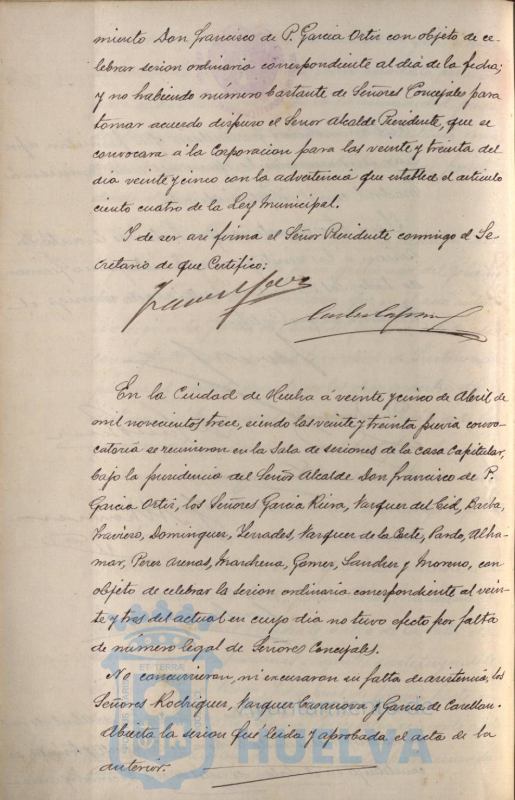 miento Don Francisco de P. Garcia Ortiz con objeto de ce-
lebrar sesion ordinaria correspondiente al dia de la fecha;
y no habiendo número bastante de Señores Concejales para
tomar acuerdo dispuso el Señor Alcalde Presidente, que se
convocara á la Corporacion para las veinte y treinta del
dia veinte y cinco con la advertencia que establece el articulo
ciento cuatro de la Ley Municipal.
Y de ser asi firma el Señor Presidente conmigo el Se-
cretario de que Certifico:
En la Ciudad de Huelva á veinte y cinco de Abril de
mil novecientos trece, siendo las veinte y treinta previa convo-
catoria se reunieron en la Sala de sesiones de la casa Capitular,
bajo la presidencia del Señor Alcalde Don Francisco de P.
Garcia Ortiz, los Señores Garcia Reina, Vazquez del Cid, Barba,
Traviero, Dominguez, Terrades, Vazquez de la Corte, Pardo, Alha-
mar, Perez Arenas, Marchena, Gomez, Sanchez y Moreno, con
objeto de celebrar la sesion ordinaria correspondiente al vein-
te y tres del actual en cuyo dia no tuvo efecto por falta
de número legal de Señores Concejales.
No concurrieron, ni excusaron su falta de asistencia, los
Señores Rodriguez, Vazquez Casanova y Garcia de Castellon.
Abierta la sesion fué leida y aprobada el acta de la
anterior.
HUELVA